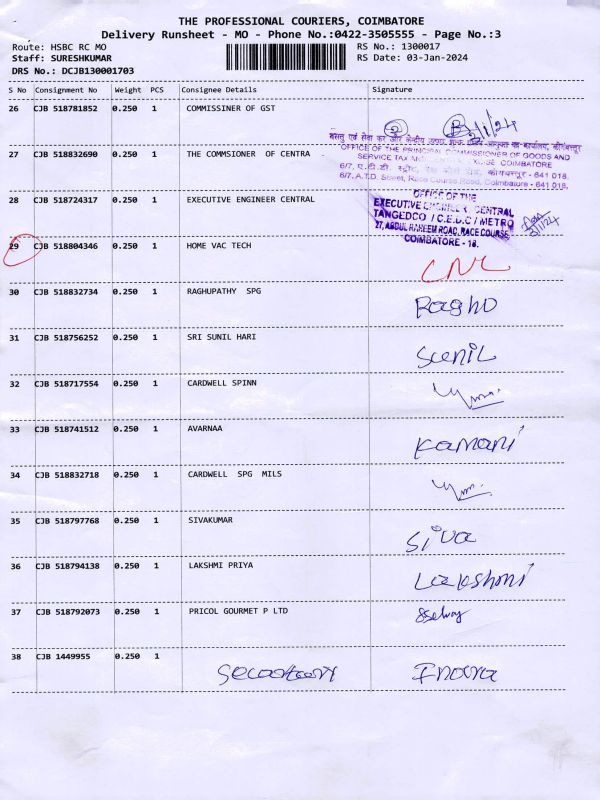 THE PROFESSIONAL COURIERS, COIMBATORE
Delivery Runsheet - MO - Phone No.:0422-3505555 - Page No.:3
Route: HSBC RC MO RS No.: 1300017
Staff: SURESHKUMAR RS Date: 03-Jan-2024
DRS No.: DCJB130001703
S No Consignment No Weight PCS Consignee Details Signature
26 CJB 518781852 0.250 1 COMMISSINER OF GST
27 CJB 518832690 0.250 1 THE COMMSIONER OF CENTRA
OFFICE OF THE PRINCIPAL COMMISSIONER OF GOODS AND
SERVICE TAX AND CENTRAL EXCISE COIMBATORE
6/7, ए.टी.डी. स्ट्रीट, रेस कोर्स रोड, कोयंबत्तूर - 641 018.
6/7, A.T.D. Street, Race Course Road, Coimbatore - 641 018.
28 CJB 518724317 0.250 1 EXECUTIVE ENGINEER CENTRAL
OFFICE OF THE
EXECUTIVE ENGINEER, CENTRAL
TANGEDCO / C.E.D.C / METRO
27, ABDUL RAHEEM ROAD, RACE COURSE
COIMBATORE - 18.
29 CJB 518804346 0.250 1 HOME VAC TECH CNL
30 CJB 518832734 0.250 1 RAGHUPATHY SPG Ragho
31 CJB 518756252 0.250 1 SRI SUNIL HARI Sunil
32 CJB 518717554 0.250 1 CARDWELL SPINN
33 CJB 518741512 0.250 1 AVARNAA Kamani
34 CJB 518832718 0.250 1 CARDWELL SPG MILS
35 CJB 518797768 0.250 1 SIVAKUMAR Siva
36 CJB 518794138 0.250 1 LAKSHMI PRIYA Lakshmi
37 CJB 518792073 0.250 1 PRICOL GOURMET P LTD
38 CJB 1449955 0.250 1